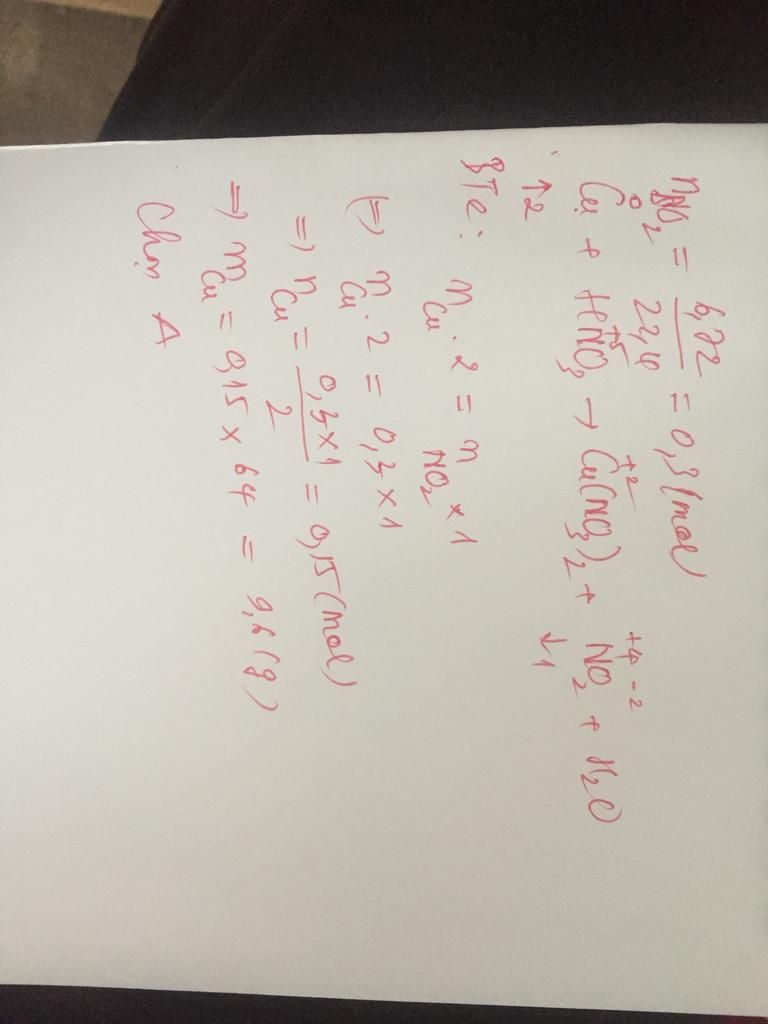 nNO2 = 6,72 / 22,4 = 0,3 (mol)
0 +5 +2 +4 -2
Cu + HNO3 → Cu(NO3)2 + NO2 + H2O
↑2 ↓1
BTe: nCu . 2 = nNO2 × 1
(=) nCu . 2 = 0,3 × 1
=) nCu = 0,3×1 / 2 = 0,15 (mol)
=) mCu = 0,15 × 64 = 9,6 (g)
Chọn A